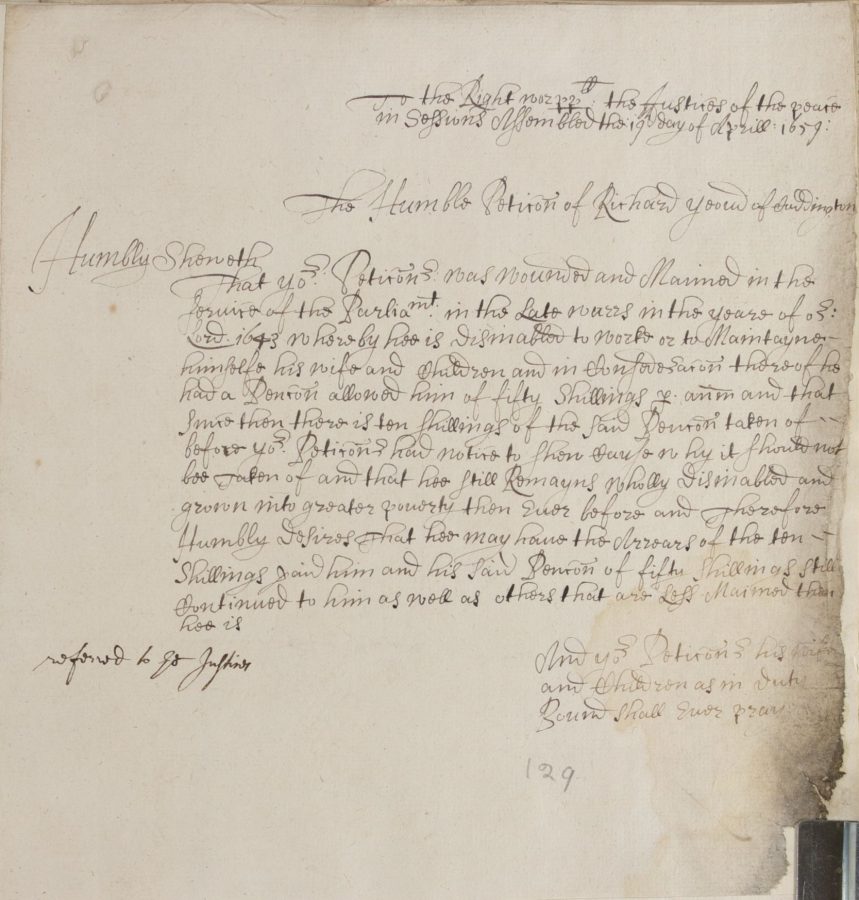 To the Right worpp:ll the Justices of the peace
in Sessions Assembled the 19th day of Aprill: 1659:
The Humble Peticon of Richard yeoud of Cuddington
Humbly Sheweth
That yor. Peticonr. was wounded and Maimed in the
Service of the Parliamt. in the Late warrs in the yeare of or:
Lord 1643 whereby hee is dismabled to worke or to Maintayne
himselfe his wife and Children and in Consederacon thereof he
had a Pencon allowed him of fifty Shillings p. annm and that
Since then there is ten shillings of the said Pencon taken of
before yor. Peticonr. had notice to shew Cause why it should not
bee Taken of and that hee still Remayns wholly Dismabled and
grown into greater poverty then Ever before and Therefore
Humbly desires That hee may have the Arrears of the ten
Shillings paid him and his said Pencon of fifty Shillings still
Continued to him as well as others that are Less Maimed then
hee is
referred to ye Justices
And yor. Peticonr. his wife
and Children as in duty
Bound shall Ever pray
129